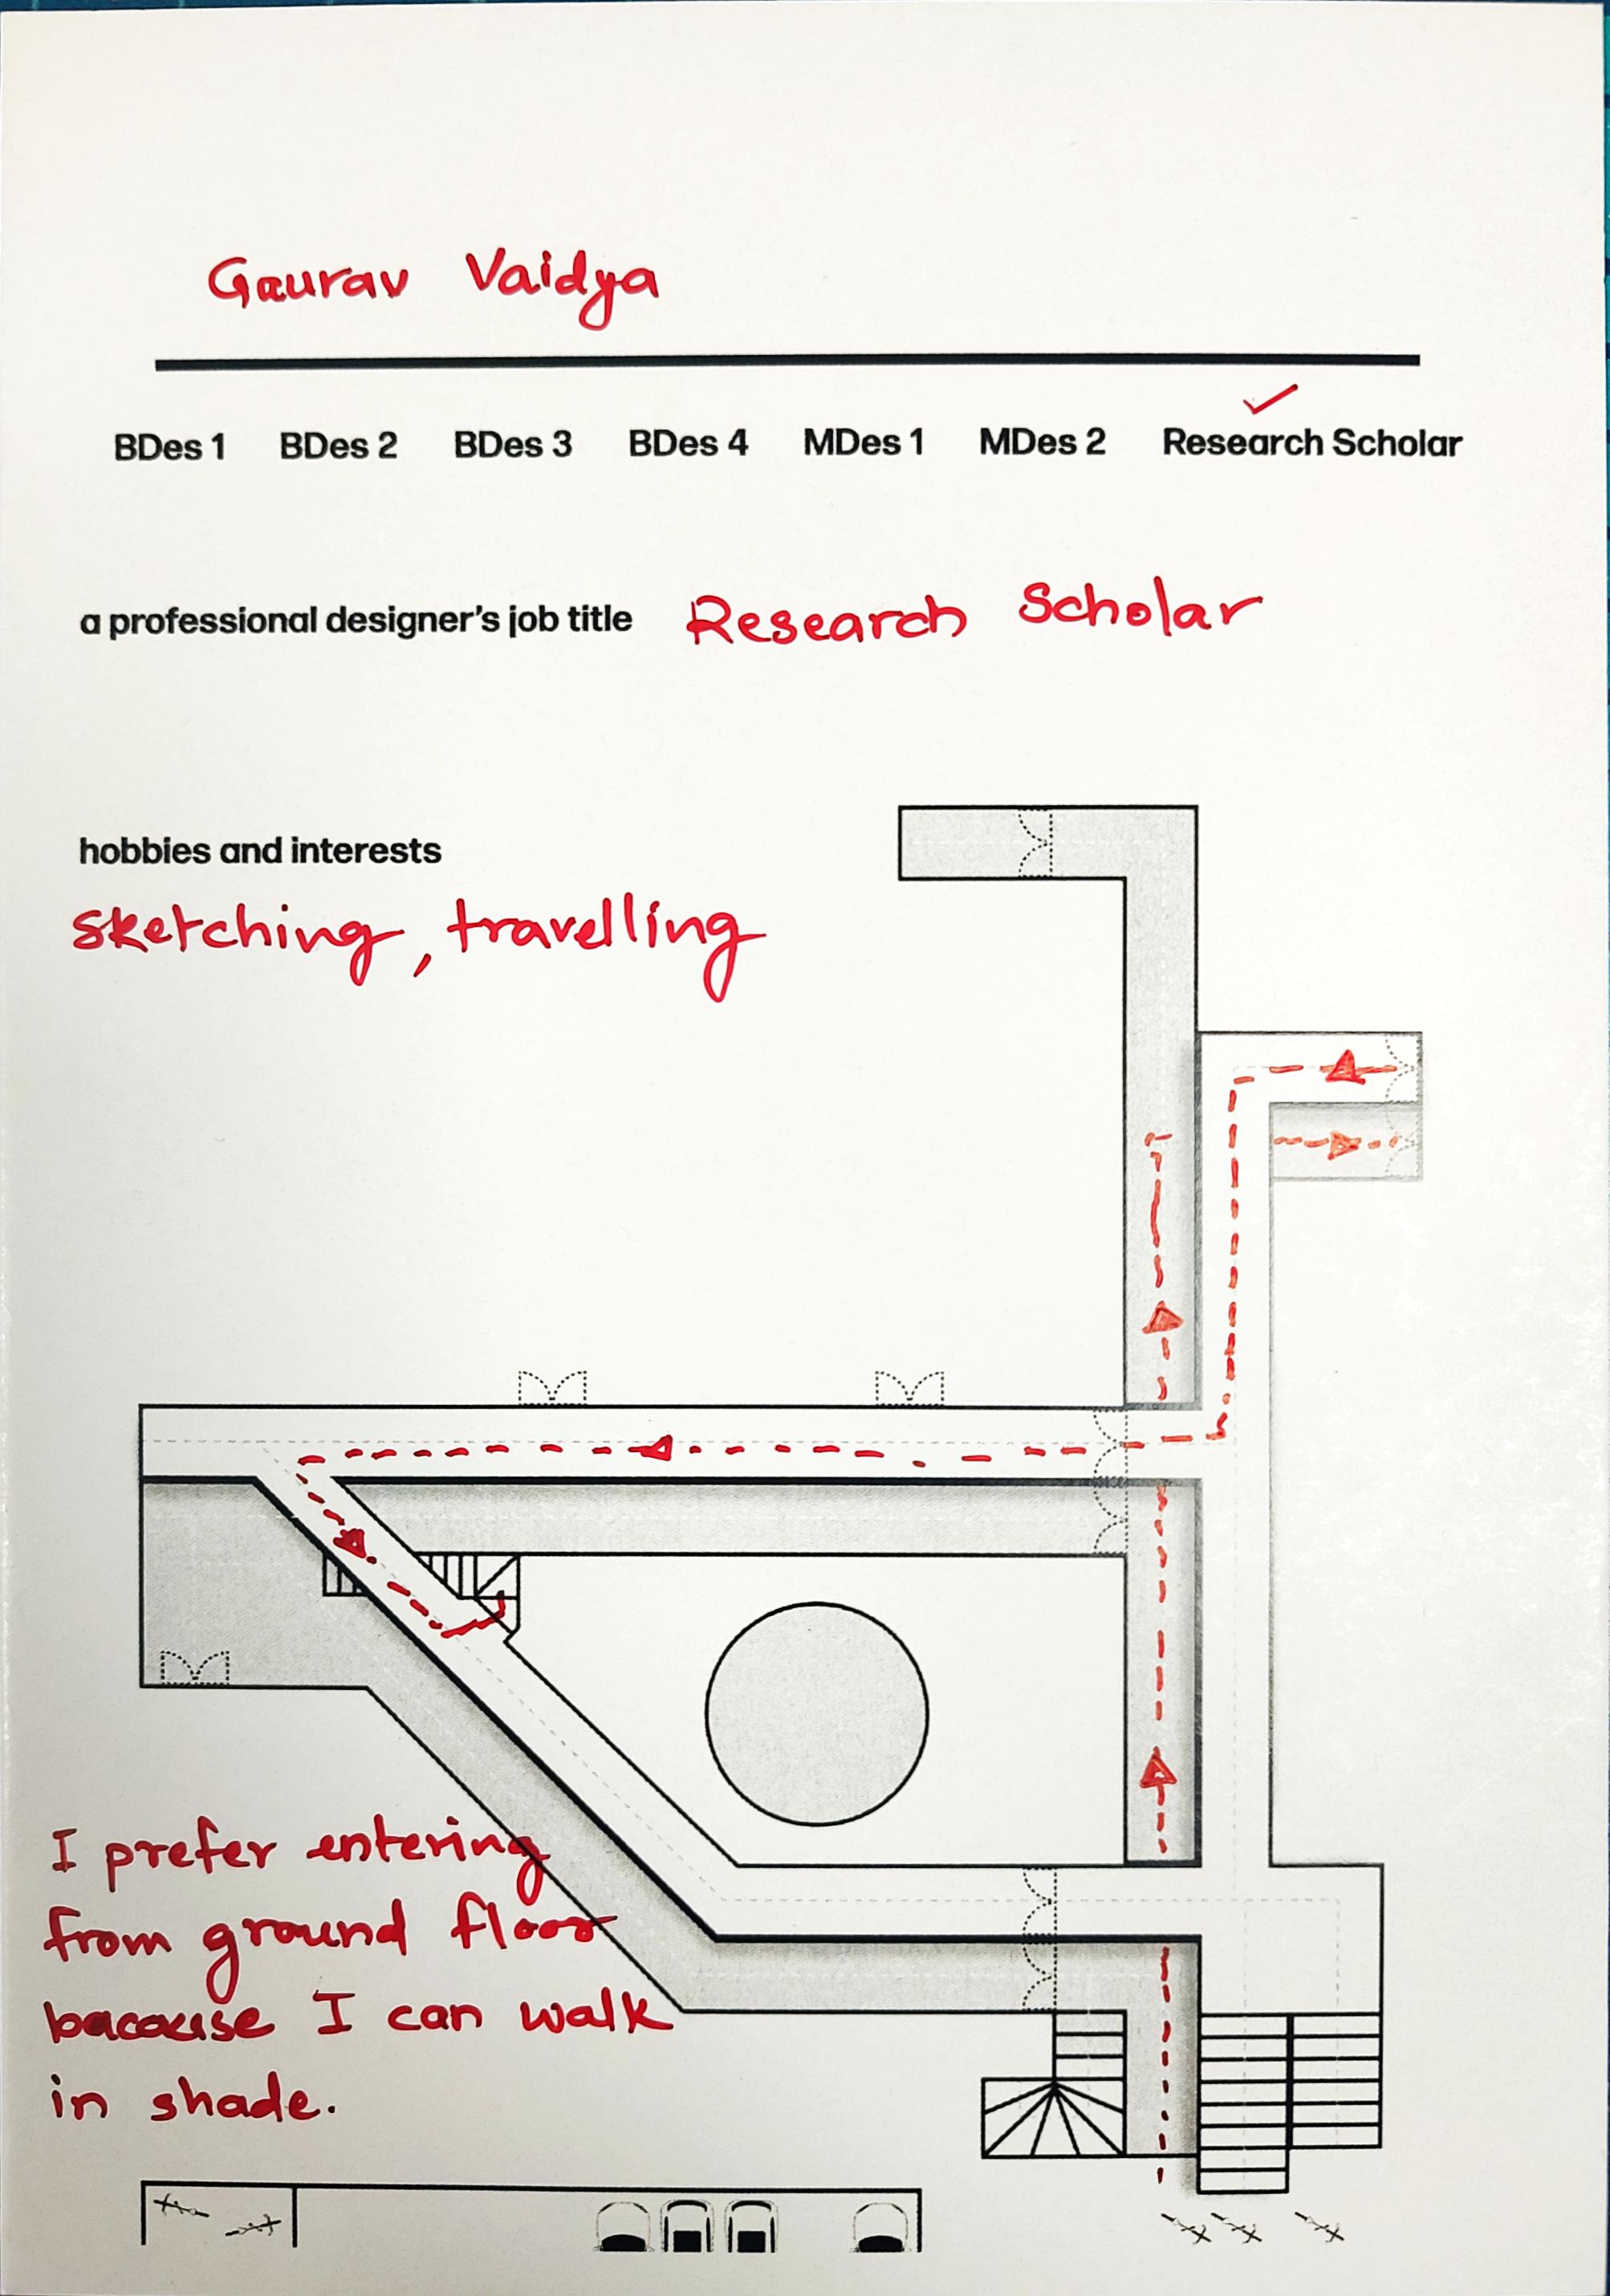 Gaurav Vaidya
BDes 1 BDes 2 BDes 3 BDes 4 MDes 1 MDes 2 Research Scholar
a professional designer's job title Research Scholar
hobbies and interests
sketching, travelling
I prefer entering
from ground floor
bacause I can walk
in shade.